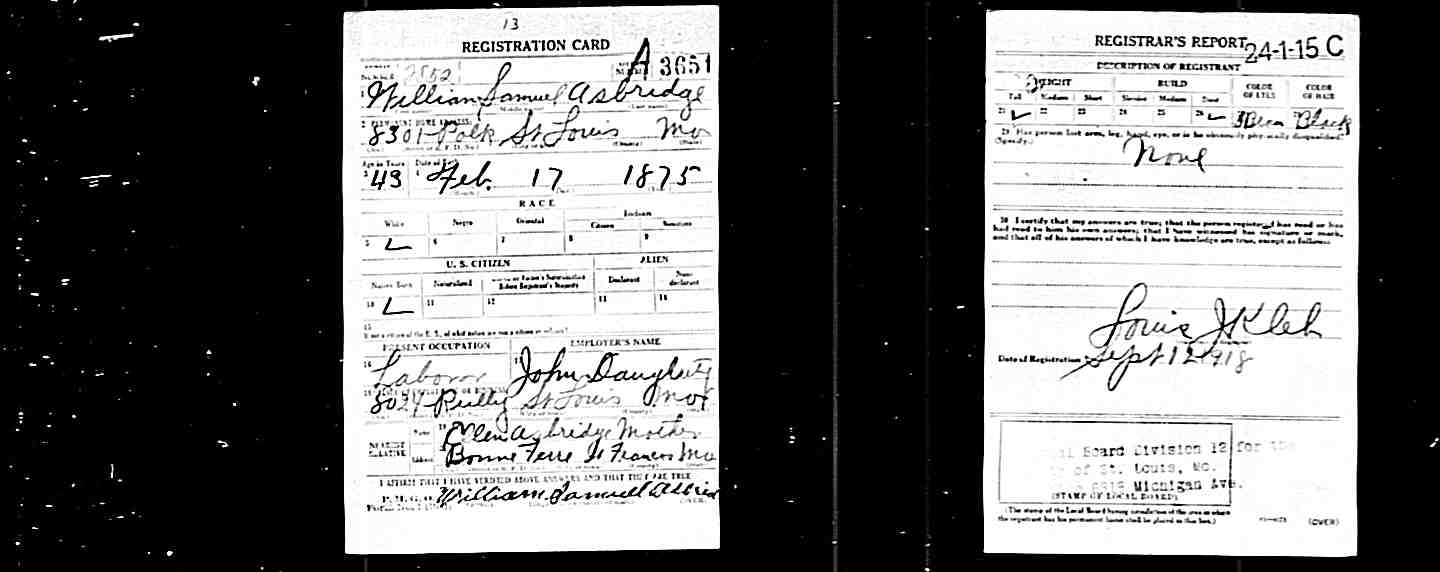 13
REGISTRATION CARD
NUMBER 2852 A 3651
William Samuel Asbridge
2 PERMANENT HOME ADDRESS:
8301 Polk St Louis Mo
Age in Years Date of Birth
43 Feb. 17 1875
RACE
White Negro Oriental Indian
Citizen Noncitizen
5 6 7 8 9
U. S. CITIZEN ALIEN
Native Born Naturalized Citizen by Father's Naturalization Before Registrant's Majority Declarant Non-declarant
10 11 12 13 14
15
If not a citizen of the U. S., of what nation are you a citizen or subject?
PRESENT OCCUPATION EMPLOYER'S NAME
16 Laborer John Daugherty
8024 Reilly St Louis Mo
NEAREST RELATIVE Name Ellen Asbridge Mother
Address Bonne Terre St Francois Mo
I AFFIRM THAT I HAVE VERIFIED ABOVE ANSWERS AND THAT THEY ARE TRUE
P. M. G. O. William Samuel Asbrid
REGISTRAR'S REPORT 24-1-15 C
DESCRIPTION OF REGISTRANT
HEIGHT BUILD COLOR OF EYES COLOR OF HAIR
Tall Medium Short Slender Medium Stout
21 22 23 24 25 26 Black
29 Has person lost arm, leg, hand, eye, or is he obviously physically disqualified?
(Specify.) None
30 I certify that my answers are true; that the person registered has read or has
had read to him his own answers; that I have witnessed his signature or mark,
and that all of his answers of which I have knowledge are true, except as follows:
Louis J Kleh
Date of Registration Sept 12 1918
Board Division 12 for the
of St. Louis, Mo.
Michigan Ave.
(STAMP OF LOCAL BOARD)
(The stamp of the Local Board having jurisdiction of the area in which
the registrant has his permanent home shall be placed in this box.)
(OVER)